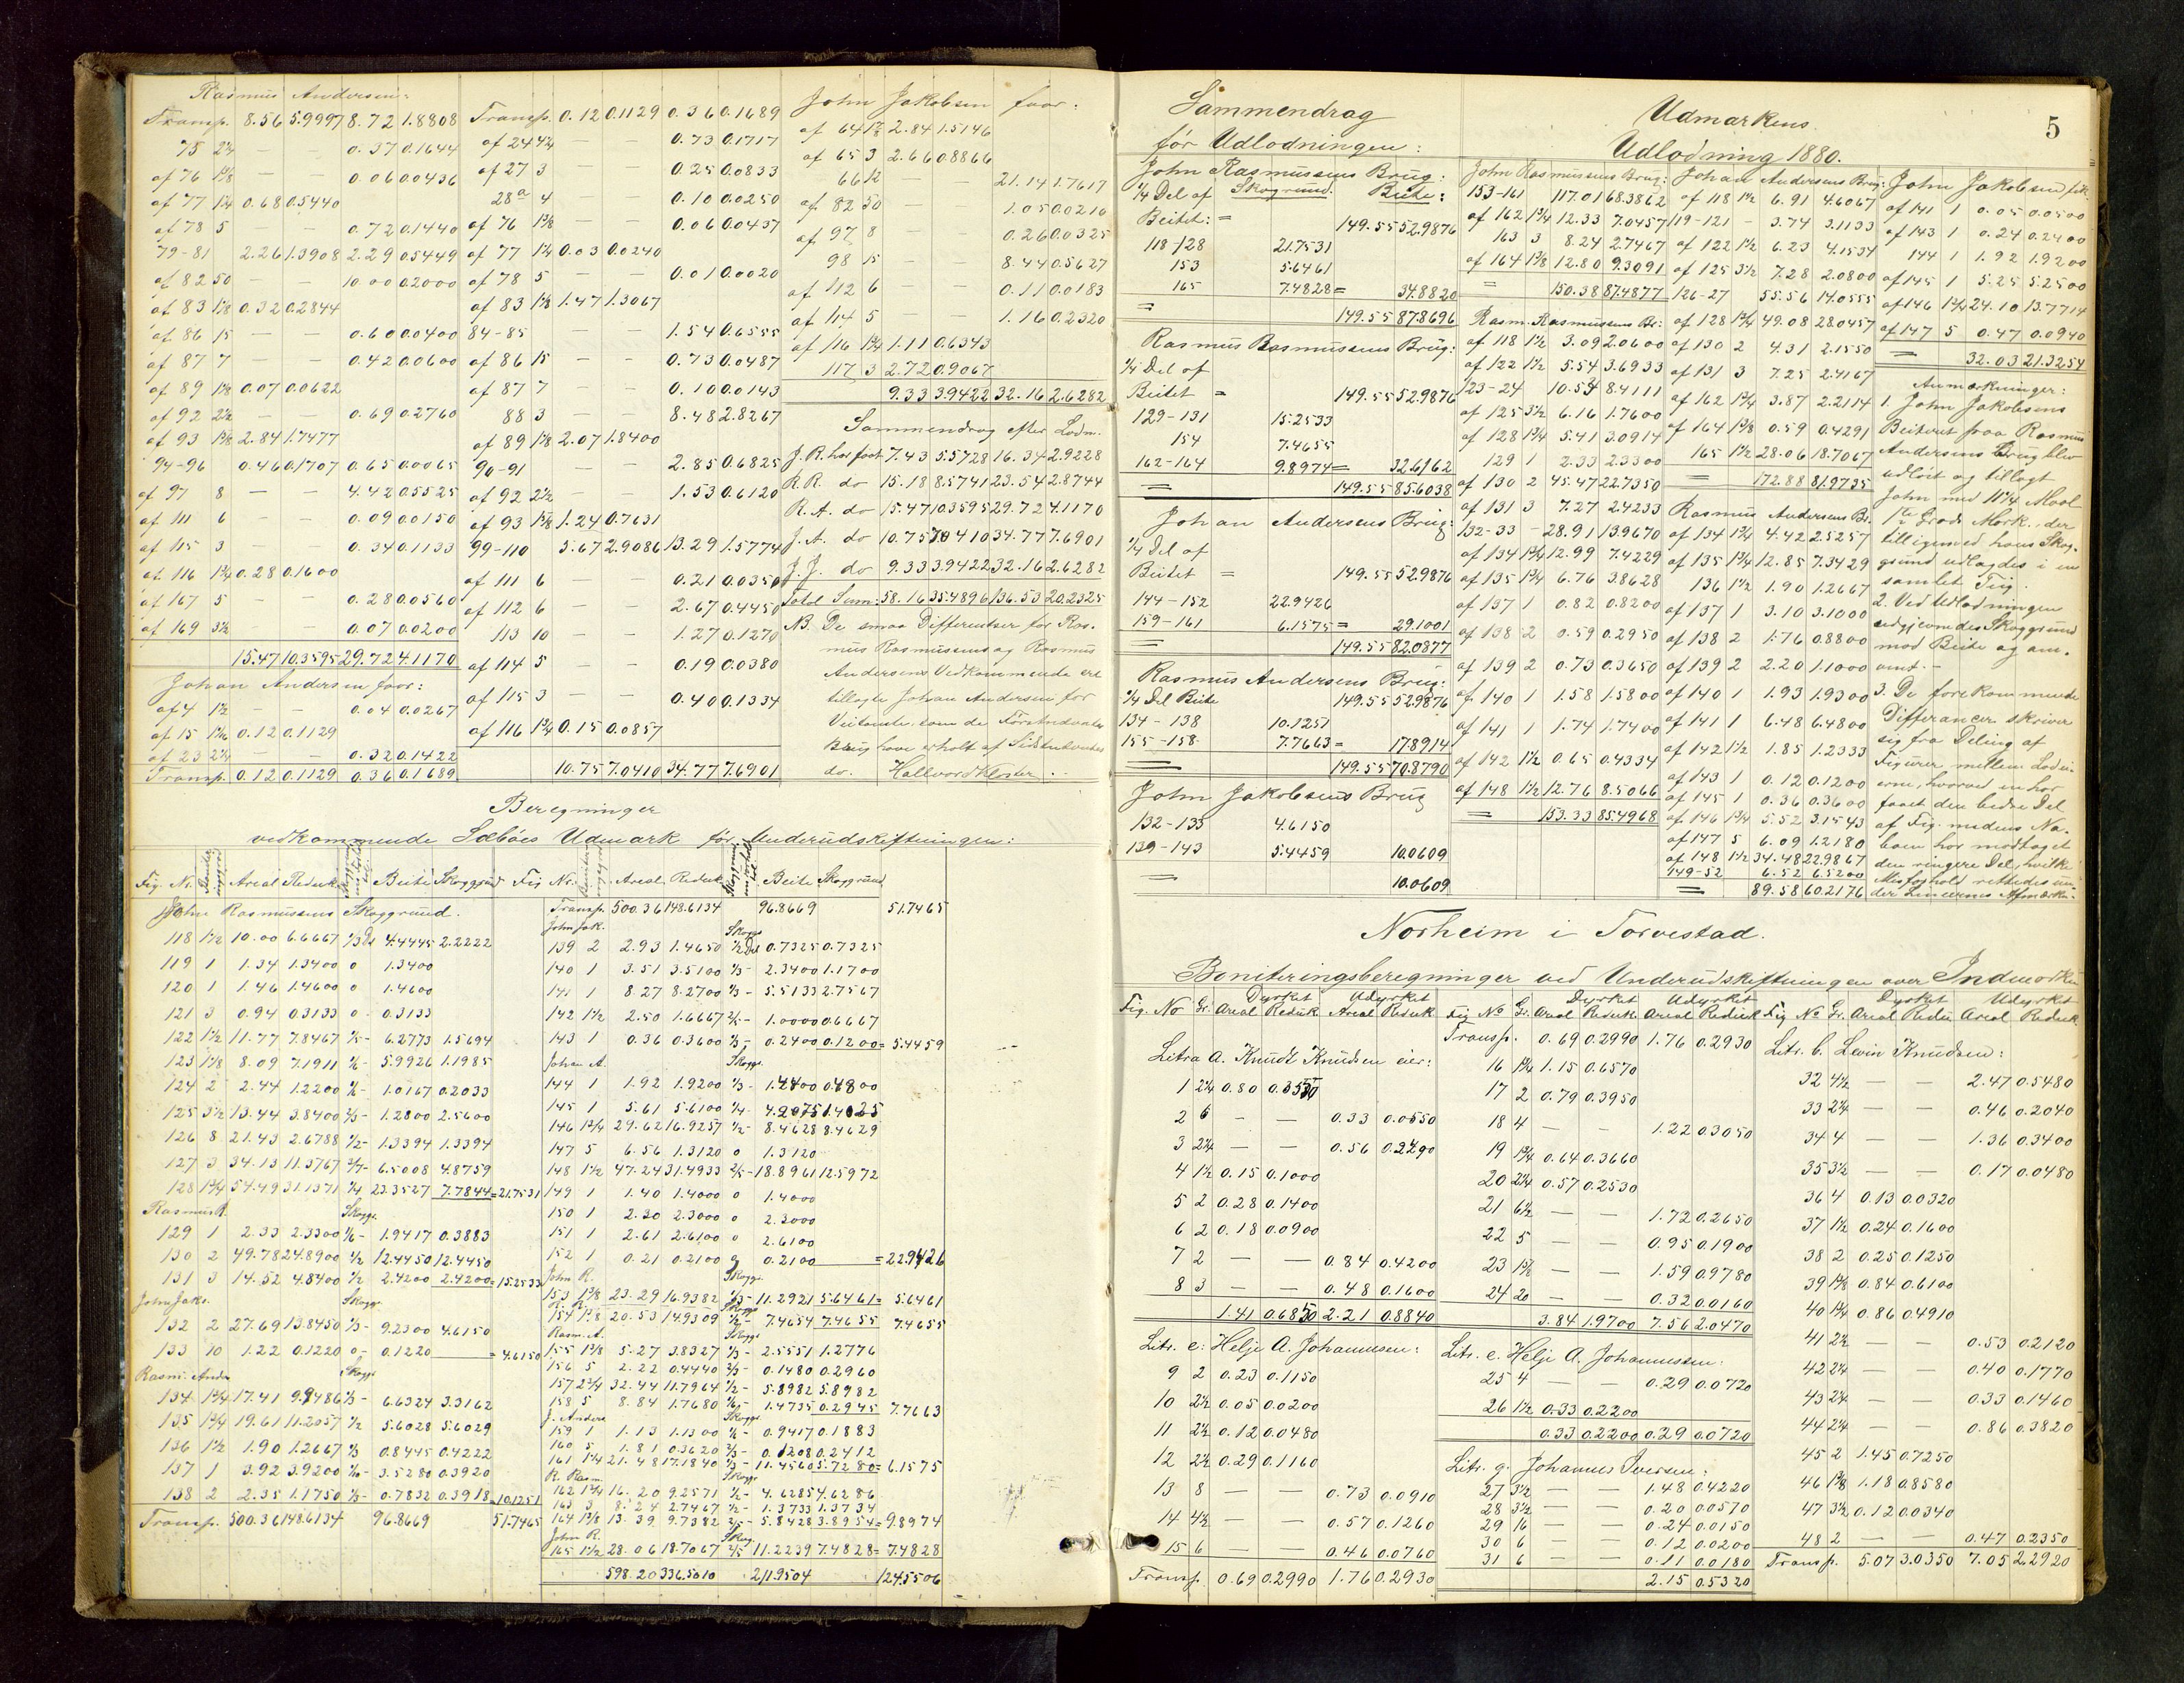 Rasmus Andersen:
Transp. 8.56 5.9997 8.72 1.8808
75 2¼ — — 0.37 0.1644
af 76 1⅜ — — 0.06 0.0436
af 77 1¼ 0.68 0.5440
af 78 5 — — 0.72 0.1440
79-81 2.26 1.3908 2.29 0.5449
af 82 50 — — 10.00 0.2000
af 83 1⅛ 0.32 0.2844
af 86 15 — — 0.60 0.0400
af 87 7 — 0.42 0.0600
af 89 1⅛ 0.07 0.0622
af 92 2½ — 0.69 0.2760
af 93 1⅝ 2.84 1.7477
94-96 0.46 0.1707 0.65 0.0065
af 97 8 — — 4.42 0.5525
af 111 6 — — 0.09 0.0150
af 115 3 — — 0.34 0.1133
af 116 1¾ 0.28 0.1600
af 167 5 — — 0.28 0.0560
af 169 3½ — — 0.07 0.0200
15.47 10.3595 29.72 4.1170
Johan Andersen faar:
af 4 1½ — — 0.04 0.0267
af 15 0.12 0.1129
af 23 2¼ — — 0.32 0.1422
Transp. 0.12 0.1129 0.36 0.1689
Transp. 0.12 0.1129 0.36 0.1689
af 24 4¼ — 0.73 0.1717
af 27 3 — 0.25 0.0833
28a 4 — 0.10 0.0250
af 76 1⅜ — — 0.06 0.0437
af 77 1¼ 0.03 0.0240
af 78 5 — — 0.01 0.0020
af 83 1⅛ 1.47 1.3067
84-85 — — 1.54 0.6555
af 86 15 — — 0.73 0.0487
af 87 7 — — 0.10 0.0143
88 3 — — 8.48 2.8267
af 89 1⅛ 2.07 1.8400
90-91 — — 2.85 0.6825
af 92 2½ — — 1.53 0.6120
af 93 1⅝ 1.24 0.7631
99-110 5.67 2.9086 13.29 1.5774
af 111 6 — — 0.21 0.0350
af 112 6 — — 2.67 0.4450
113 10 — — 1.27 0.1270
af 114 5 — — 0.19 0.0380
af 115 3 — — 0.40 0.1334
af 116 1¾ 0.15 0.0857
10.75 7.0410 34.77 7.6901
John Jakobsen faar:
af 64 1⅞ 2.84 1.5146
af 65 3 2.66 0.8866
66 12 — 21.14 1.7617
af 82 50 — — 1.05 0.0210
af 97 8 — — 0.26 0.0325
98 15 — — 8.44 0.5627
af 112 6 — — 0.11 0.0183
af 114 5 — — 1.16 0.2320
af 116 1¾ 1.11 0.6343
117 3 2.72 0.9067
9.33 3.9422 32.16 2.6282
Sammendrag efter Lodn.
J.R. har faaet 7.43 5.5728 16.34 2.9228
R.R. do 15.18 8.5741 23.54 2.8744
R.A. do 15.47 10.3595 29.72 4.1170
J.A. do 10.75 7.0410 34.77 7.6901
J.J. do 9.33 3.9422 32.16 2.6282
Total Sum: 58.16 35.4896 136.53 20.2325
NB. De smaa Differentser for Ras-
mus Rasmussens og Rasmus
Andersens Vedkommende ere
tillagte Johan Andersen for
som de Førstnævnte
Brug have erholdt af Sidstnævntes
do. Hallvord Kloster.
Beregninger
vedkommende Sæbøes Udmark før Underudskiftningen:
Fig. Nr. Areal Reduk. Beite Skoggrund Fig Nr. Areal Reduk. Beite Skoggrund
John Rasmussens Skoggrund.
118 1½ 10.00 6.6667 ⅓ Del 4.4445 2.2222
119 1 1.34 1.3400 0 1.3400
120 1 1.46 1.4600 0 1.4600
121 3 0.94 0.3133 0 - 0.3133
122 1½ 11.77 7.8467 ⅕ - 6.2773 1.5694
123 1⅛ 8.09 7.1911 ⅙ - 5.9926 1.1985
124 2 2.44 1.2200 ⅙ - 1.0167 0.2033
125 3½ 13.44 3.8400 ⅔ - 1.2800 2.5600
126 8 21.43 2.6788 ½ - 1.3394 1.3394
127 3 34.13 11.3767 3/7 - 6.5008 4.8759
128 1¾ 54.49 31.1371 ¼ 23.3527 7.7844 = 21.7531
Rasmus R. Skogg.
129 1 2.33 2.3300 ⅙ - 1.9417 0.3883
130 2 49.78 24.8900 ½ 12.4450 12.4450
131 3 14.52 4.8400 ½ 2.4200 2.4200 = 15.2533
John Jak. Skogg.
132 2 27.69 13.8450 ⅓ - 9.2300 4.6150
133 10 1.22 0.1220 0 - 0.1220 = 4.6150
Rasm. Ander Skogg.
134 1¾ 17.41 9.9486 ⅓ - 6.6324 3.3162
135 1¾ 19.61 11.2057 ½ 5.6028 5.6029
136 1½ 1.90 1.2667 ⅓ 0.8445 0.4222
137 1 3.92 3.9200 ⅒ - 3.5280 0.3920
138 2 2.35 1.1750 ⅓ - 0.7832 0.3918 = 10.1251
Transp. 500.36 148.6134 96.8669 51.7465
Transp. 500.36 148.6134 96.8669 51.7465
John Jak. Skogg.
139 2 2.93 1.4650 ½ Del 0.7325 0.7325
140 1 3.51 3.5100 ⅓ - 2.3400 1.1700
141 1 8.27 8.2700 ⅓ - 5.5133 2.7567
142 1½ 2.50 1.6667 ⅖ - 1.0000 0.6667
143 1 0.36 0.3600 ⅓ - 0.2400 0.1200 = 5.4459
Johan A. Skogg.
144 1 1.92 1.9200 ¼ - 1.4400 0.4800
145 1 5.61 5.6100 ¼ - 4.2075 1.4025
146 1¾ 29.62 16.9257 ½ - 8.4628 8.4629
147 5 6.56 1.3120 0 1.3120
148 1½ 47.24 31.4933 ⅖ - 18.8961 12.5972
149 1 1.40 1.4000 0 1.4000
150 1 2.30 2.3000 0 2.3000
151 1 2.61 2.6100 0 2.6100
152 1 0.21 0.2100 0 0.2100 = 22.9426
John R. Skogg.
153 1⅜ 23.29 16.9382 ⅓ - 11.2921 5.6461 = 5.6461
R. R. Skogg.
154 1⅜ 20.53 14.9309 ½ - 7.4654 7.4655 7.4655
Rasm. A. Skogg.
155 1⅜ 5.27 3.8327 ⅓ - 2.5551 1.2776
156 5 2.22 0.4440 ⅔ - 0.1480 0.2960
157 2¾ 32.44 11.7964 ½ - 5.8982 5.8982
158 5 8.84 1.7680 ⅙ - 1.4735 0.2945 7.7663
J. Anders. Skogg.
159 1 1.13 1.1300 ⅙ - 0.9417 0.1883
160 5 1.81 0.3620 ⅔ - 0.1208 0.2412
161 1¼ 21.48 17.1840 ⅓ - 11.4560 5.7280 = 6.1575
R. Rasm. Skogg.
162 1¾ 16.20 9.2571 ½ - 4.6285 4.6286
163 3 8.24 2.7467 ½ - 1.3733 1.3734
164 1⅜ 13.39 9.7382 ⅖ - 5.8428 3.8954 = 9.8974
John R. Skog.
165 1½ 28.06 18.7067 ⅖ 11.2239 7.4828 = 7.4828
598.20 336.5010 211.9504 124.5506
5
Sammendrag
før Udlodningen:
John Rasmussens Brug:
¼ Del af Skoggrund. Beite:
Beitet: = 149.55 52.9876
118-128 21.7531
153 5.6461
165 7.4828 = 34.8820
= 149.55 87.8696
Rasmus Rasmussens Brug:
¼ Del af
Beitet = 149.55 52.9876
129-131 15.2533
154 7.4655
162-164 9.8974 = 32.6162
= 149.55 85.6038
Johan Andersens Brug:
¼ Del af
Beitet = 149.55 52.9876
144-152 22.9426
159-161 6.1575 = 29.1001
149.55 82.0877
Rasmus Andersens Brug:
¼ Del Beite 149.55 52.9876
134-138 10.1251
155-158 7.7663 = 17.8914
149.55 70.8790
John Jakobsens Brug
132-133 4.6150
139-143 5.4459 10.0609
— 10.0609
Udmarkens
Udlodning 1880.
John Rasmussens Brug:
153-161 117.01 68.3862
af 162 1¾ 12.33 7.0457
163 3 8.24 2.7467
af 164 1⅜ 12.80 9.3091
= 150.38 87.4877
Rasm. Rasmussens Br:
af 118 1½ 3.09 2.0600
af 122 1½ 5.54 3.6933
123-24 10.53 8.4111
af 125 3½ 6.16 1.7600
af 128 1¾ 5.41 3.0914
129 1 2.33 2.3300
af 130 2 45.47 22.7350
af 131 3 7.27 2.4233
132-33 — 28.91 13.9670
af 134 1¾ 12.99 7.4229
af 135 1¾ 6.76 3.8628
af 137 1 0.82 0.8200
af 138 2 0.59 0.2950
af 139 2 0.73 0.3650
af 140 1 1.58 1.5800
af 141 1 1.74 1.7400
af 142 1½ 0.65 0.4334
af 148 1½ 12.76 8.5066
= 153.33 85.4968
Johan Andersens Brug:
af 118 1½ 6.91 4.6067
119-121 - 3.74 3.1133
af 122 1½ 6.23 4.1534
af 125 3½ 7.28 2.0800
126-27 55.56 14.0555
af 128 1¾ 49.08 28.0457
af 130 2 4.31 2.1550
af 131 3 7.25 2.4167
af 162 1¾ 3.87 2.2114
af 164 1⅜ 0.59 0.4291
165 1½ 28.06 18.7067
= 172.88 81.9735
Rasmus Andersens Br.
af 134 1¾ 4.42 2.5257
af 135 1¾ 12.85 7.3429
136 1½ 1.90 1.2667
af 137 1 3.10 3.1000
af 138 2 1.76 0.8800
af 139 2 2.20 1.1000
af 140 1 1.93 1.9300
af 141 1 6.48 6.4800
af 142 1½ 1.85 1.2333
af 143 1 0.12 0.1200
af 145 1 0.36 0.3600
af 146 1¾ 5.52 3.1543
af 147 5 6.09 1.2180
af 148 1½ 34.48 22.9867
149-52 6.52 6.5200
= 89.58 60.2176
John Jakobsen fik:
af 141 1 0.05 0.0500
af 143 1 0.24 0.2400
144 1 1.92 1.9200
af 145 1 5.25 5.2500
af 146 1¾ 24.10 13.7714
af 147 5 0.47 0.0940
= 32.03 21.3254
Anmærkninger:
1. John Jakobsens
Beiteret paa Rasmus
Andersens Brug blev
udløst og tillagt
John med 11¼ Maal
1te Grads Mark, der
tilligemed hans Skog-
grund udlagdes i en
samlet Teig.
2. Ved Udlodningen
udgjevnedes Skoggrund
mod Beite og om-
vent. -
3. De forekommende
Differancer skriver
sig fra Deling af
Figurer mellem Lodei-
erne, hvorved en har
faaet den bedre Del
af Fig. medens Na-
boen har modtaget
den ringere Del, hvilke
Misforhold rettedes un-
der Liniernes Afmærkn.
Norheim i Torvestad.
Boniteringsberegninger ved Underudskiftningen over Indmarken
Dyrket Udyrket Dyrket Udyrket Dyrket Udyrket
Fig. No Gr. Areal Reduk Areal Reduk Fig No Gr. Areal Reduk Areal Reduk Fig No Gr. Areal Reduk Areal Reduk.
Litra a. Knudt Knudsen eier:
1 2¼ 0.80 0.3550
2 6 — — 0.33 0.0550
3 2¼ — — 0.56 0.2490
4 1½ 0.15 0.1000
5 2 0.28 0.1400
6 2 0.18 0.0900
7 2 — — 0.84 0.4200
8 3 — — 0.48 0.1600
1.41 0.6850 2.21 0.8840
Litr. e: Helje A. Johannesen:
9 2 0.23 0.1150
10 2½ 0.05 0.0200
11 2½ 0.12 0.0480
12 2½ 0.29 0.1160
13 8 — — 0.73 0.0910
14 4½ — — 0.57 0.1260
15 6 — — 0.46 0.0760
Transp. 0.69 0.2990 1.76 0.2930
Transp. 0.69 0.2990 1.76 0.2930
16 1¾ 1.15 0.6570
17 2 0.79 0.3950
18 4 — — 1.22 0.3050
19 1¾ 0.64 0.3660
20 2¼ 0.57 0.2530
21 6½ — — 1.72 0.2650
22 5 — — 0.95 0.1900
23 1⅝ — — 1.59 0.9780
24 20 — — 0.32 0.0160
3.84 1.9700 7.56 2.0470
Litr. e. Helje A. Johannessen:
25 4 — — 0.29 0.0720
26 1½ 0.33 0.2200
0.33 0.2200 0.29 0.0720
Litr. g. Johannes Iversen:
27 3½ — — 1.48 0.4220
28 3½ — — 0.20 0.0570
29 16 — — 0.24 0.0150
30 6 — — 0.12 0.0200
31 6 — — 0.11 0.0180
2.15 0.5320
Litr. b. Levin Knudsen:
32 4½ — — 2.47 0.5480
33 2¼ — — 0.46 0.2040
34 4 — — 1.36 0.3400
35 3½ — — 0.17 0.0480
36 4 0.13 0.0320
37 1½ 0.24 0.1600
38 2 0.25 0.1250
39 1⅜ 0.84 0.6100
40 1¾ 0.86 0.4910
41 2½ — — 0.53 0.2120
42 2¼ — — 0.40 0.1770
43 2¼ — — 0.33 0.1460
44 2¼ — — 0.86 0.3820
45 2 1.45 0.7250
46 1⅜ 1.18 0.8580
47 3½ 0.12 0.0340
48 2 — — 0.47 0.2350
Transp. 5.07 3.0350 7.05 2.2920